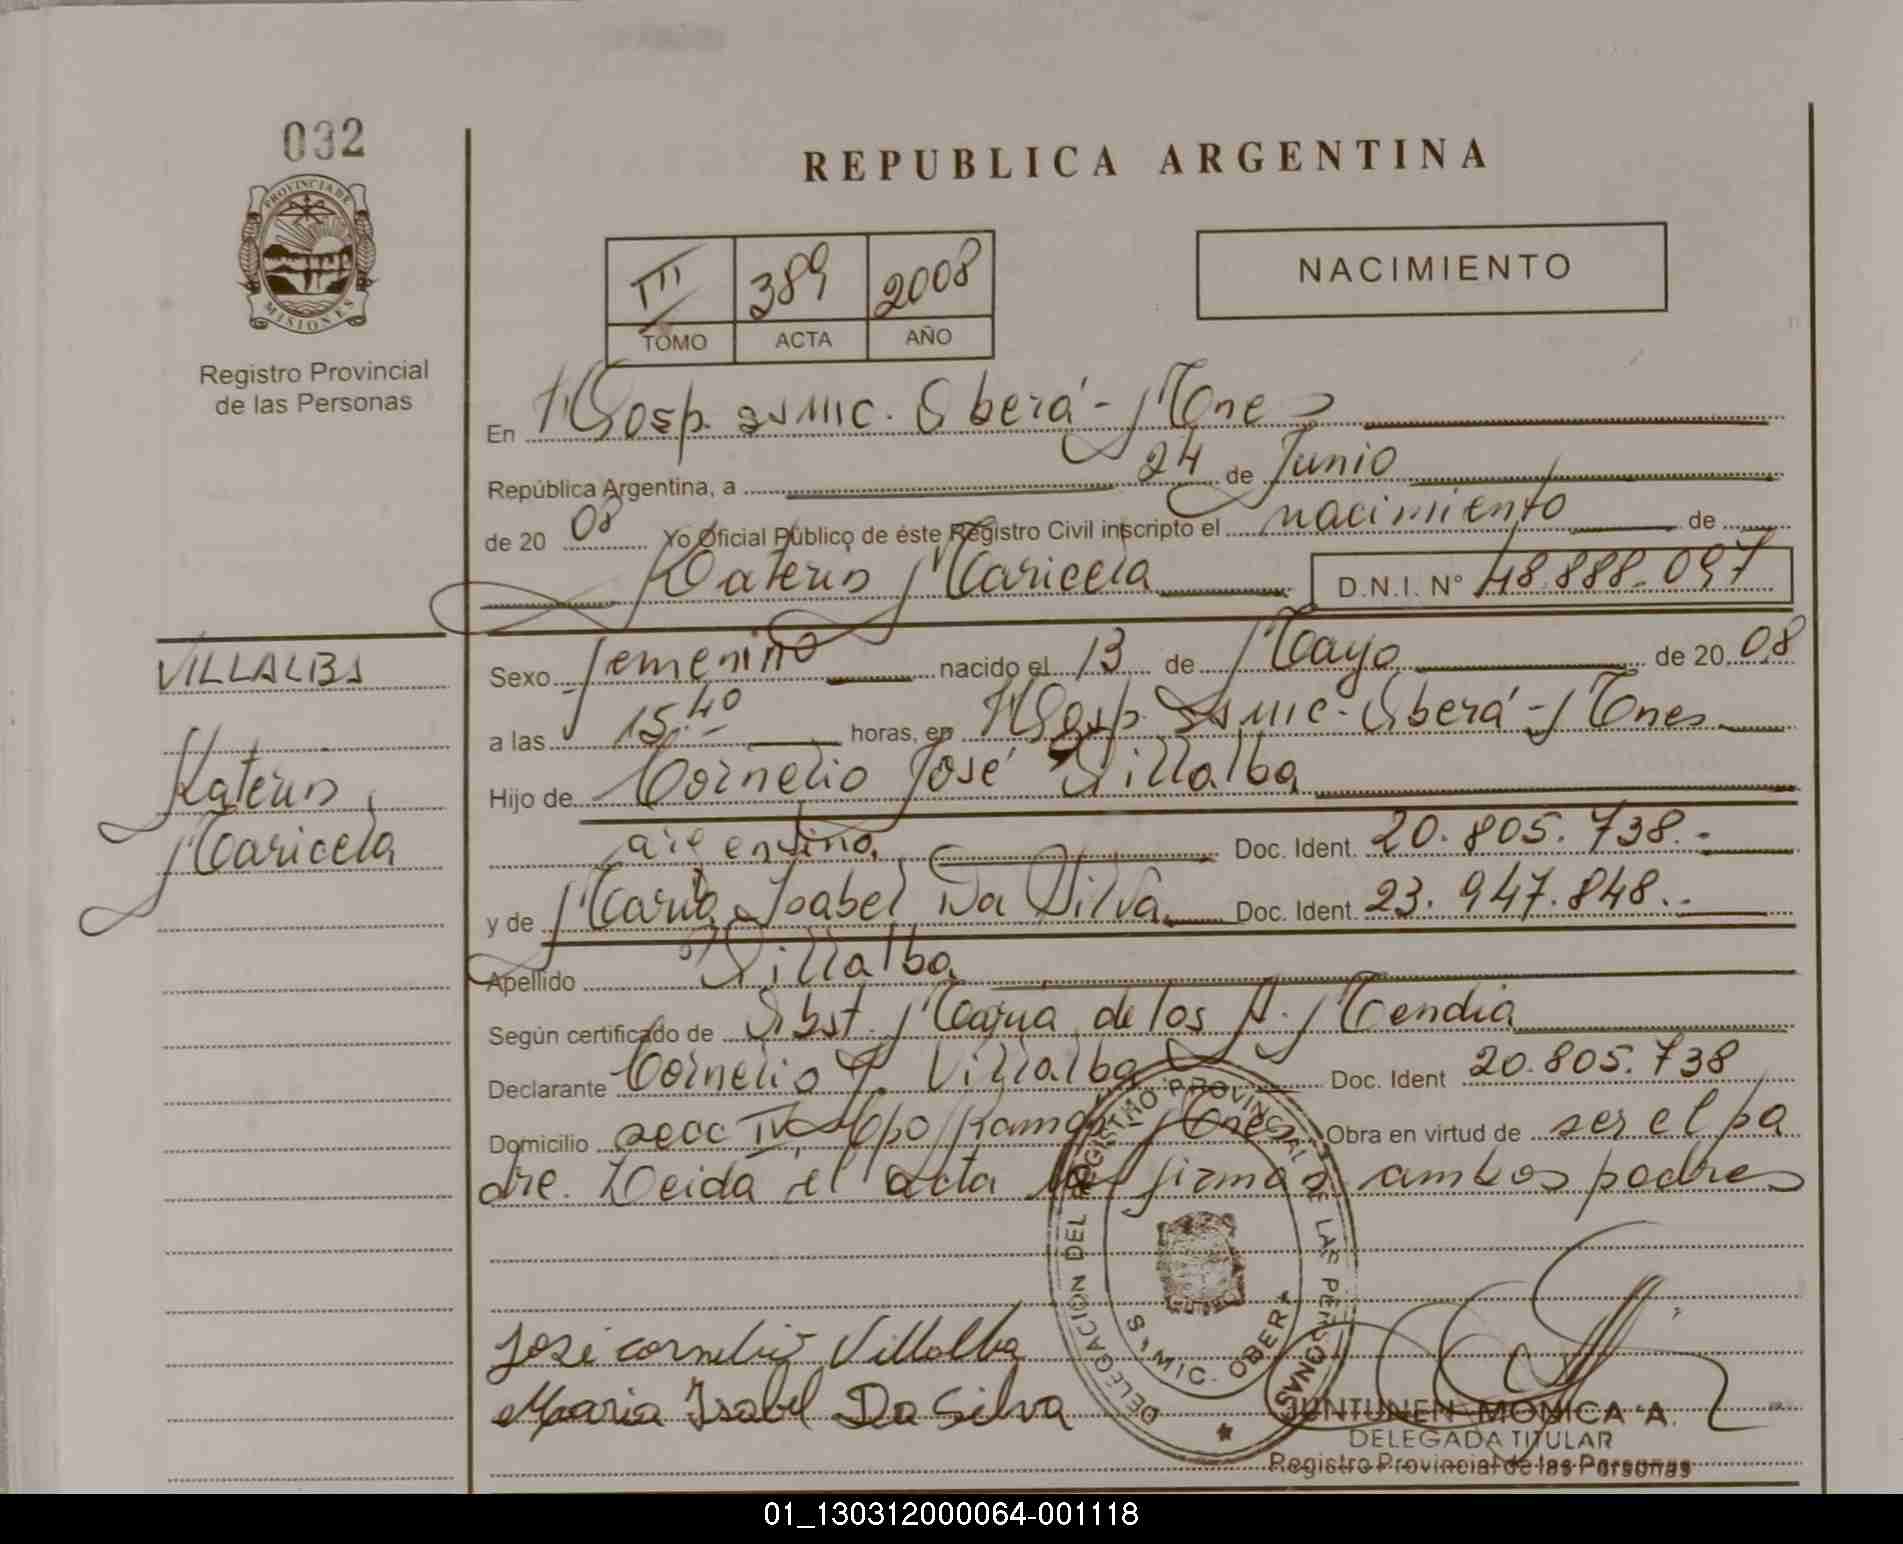 032
PROVINCIA DE
MISIONES
Registro Provincial
de las Personas
REPUBLICA ARGENTINA
III 389 2008
TOMO ACTA AÑO
NACIMIENTO
En Hosp. Samic. Oberá - Mnes
República Argentina, a 24 de Junio
de 20 08 Yo Oficial Público de éste Registro Civil inscripto el nacimiento de
Katerin Maricela D.N.I. N° 48.888.097
VILLALBA
Katerin
Maricela
Sexo femenino nacido el 13 de Mayo de 20 08
a las 15.40 horas, en Hosp. Samic - Oberá - Mnes
Hijo de Cornelio José Villalba
argentino Doc. Ident. 20.805.738.-
y de María Isabel Da Silva Doc. Ident. 23.947.848.-
Apellido Villalba
Según certificado de Obst. María de los A. Mendia
Declarante Cornelio J. Villalba Doc. Ident 20.805.738
Domicilio secc IV Cpo Ramón Mnes Obra en virtud de ser el pa
dre. Leida el acta la firman ambos padres
José cornelio Villalba
Maria Isabel Da Silva
DELEGACION DEL REGISTRO PROVINCIAL DE LAS PERSONAS
OBERA
JUNTUNEN MONICA A.
DELEGADA TITULAR
Registro Provincial de las Personas
01_130312000064-001118